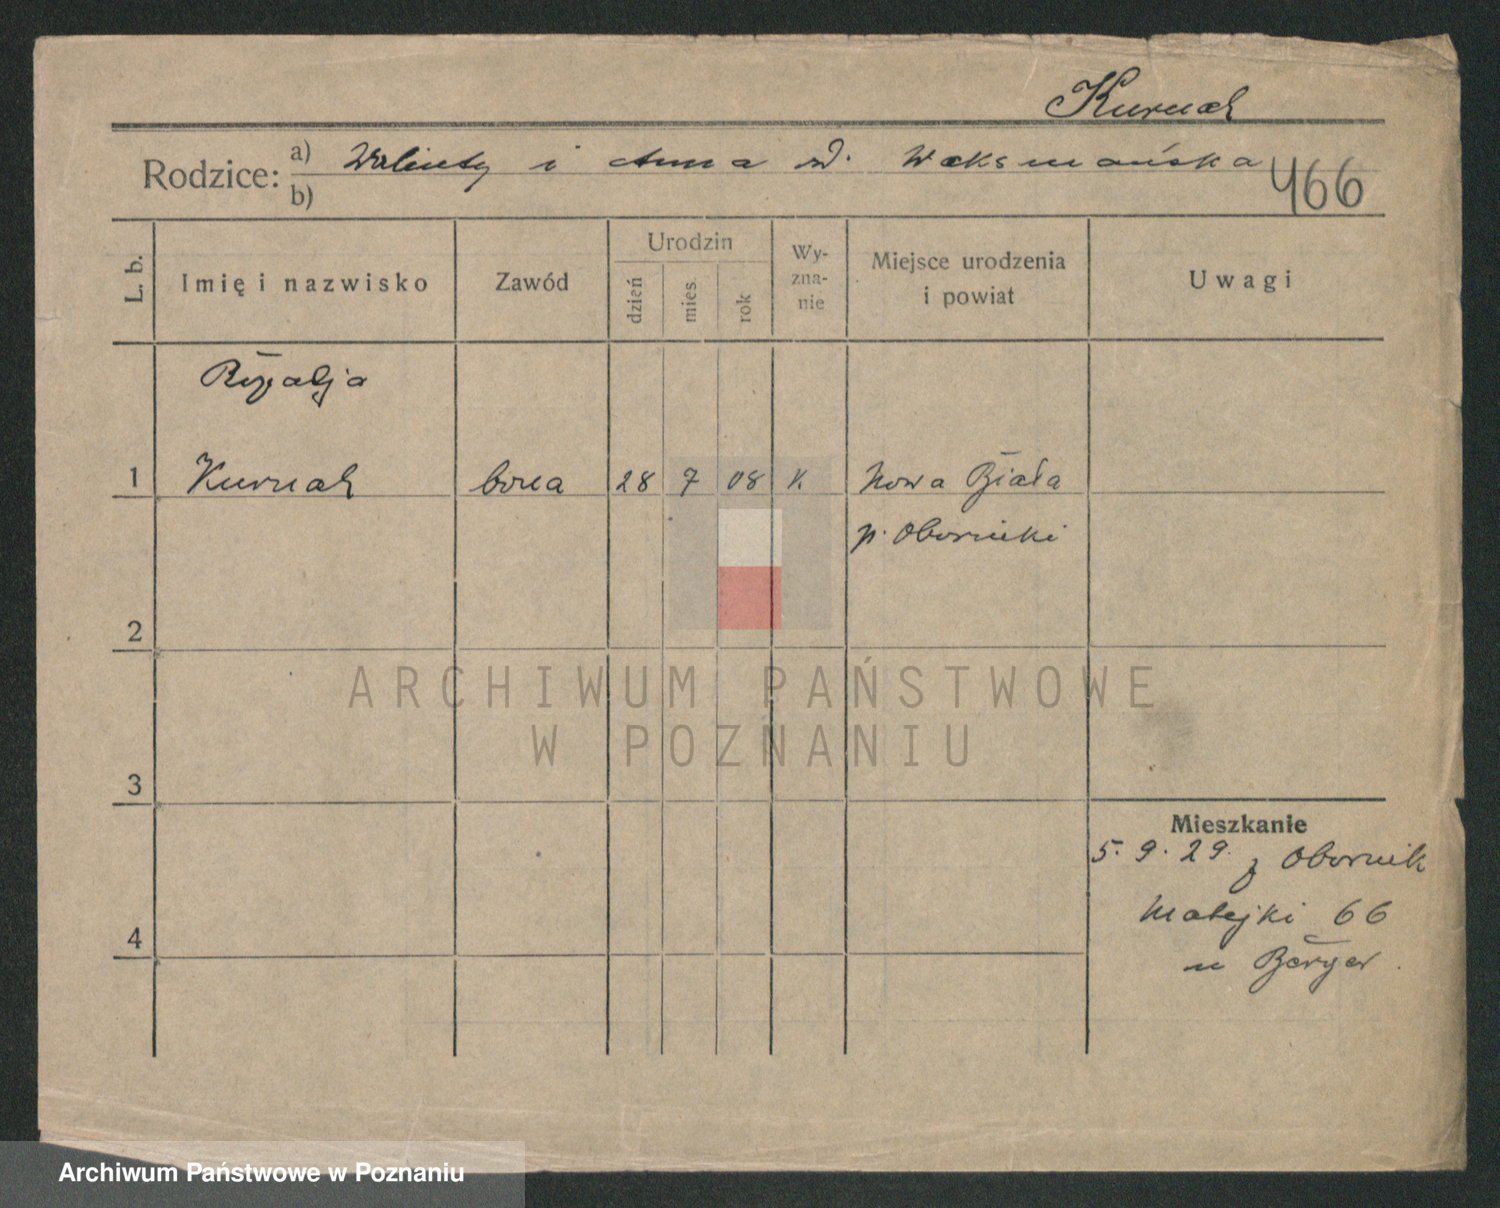 Kurnak
Rodzice: a) Walenty i Anna z d. Waksmańska
b)
466
L. b.
Imię i nazwisko
Zawód
Urodzin
dzień
mies.
rok
Wy-
zna-
nie
Miejsce urodzenia
i powiat
Uwagi
Rozalja
1 Kurnak bona 28 7 08 K. Nowa Biała
p. Oborniki
2
ARCHIWUM PAŃSTWOWE
W POZNANIU
3
Mieszkanie
5. 9. 29. z Obornik
Matejki 66
4
u Berger.
Archiwum Państwowe w Poznaniu